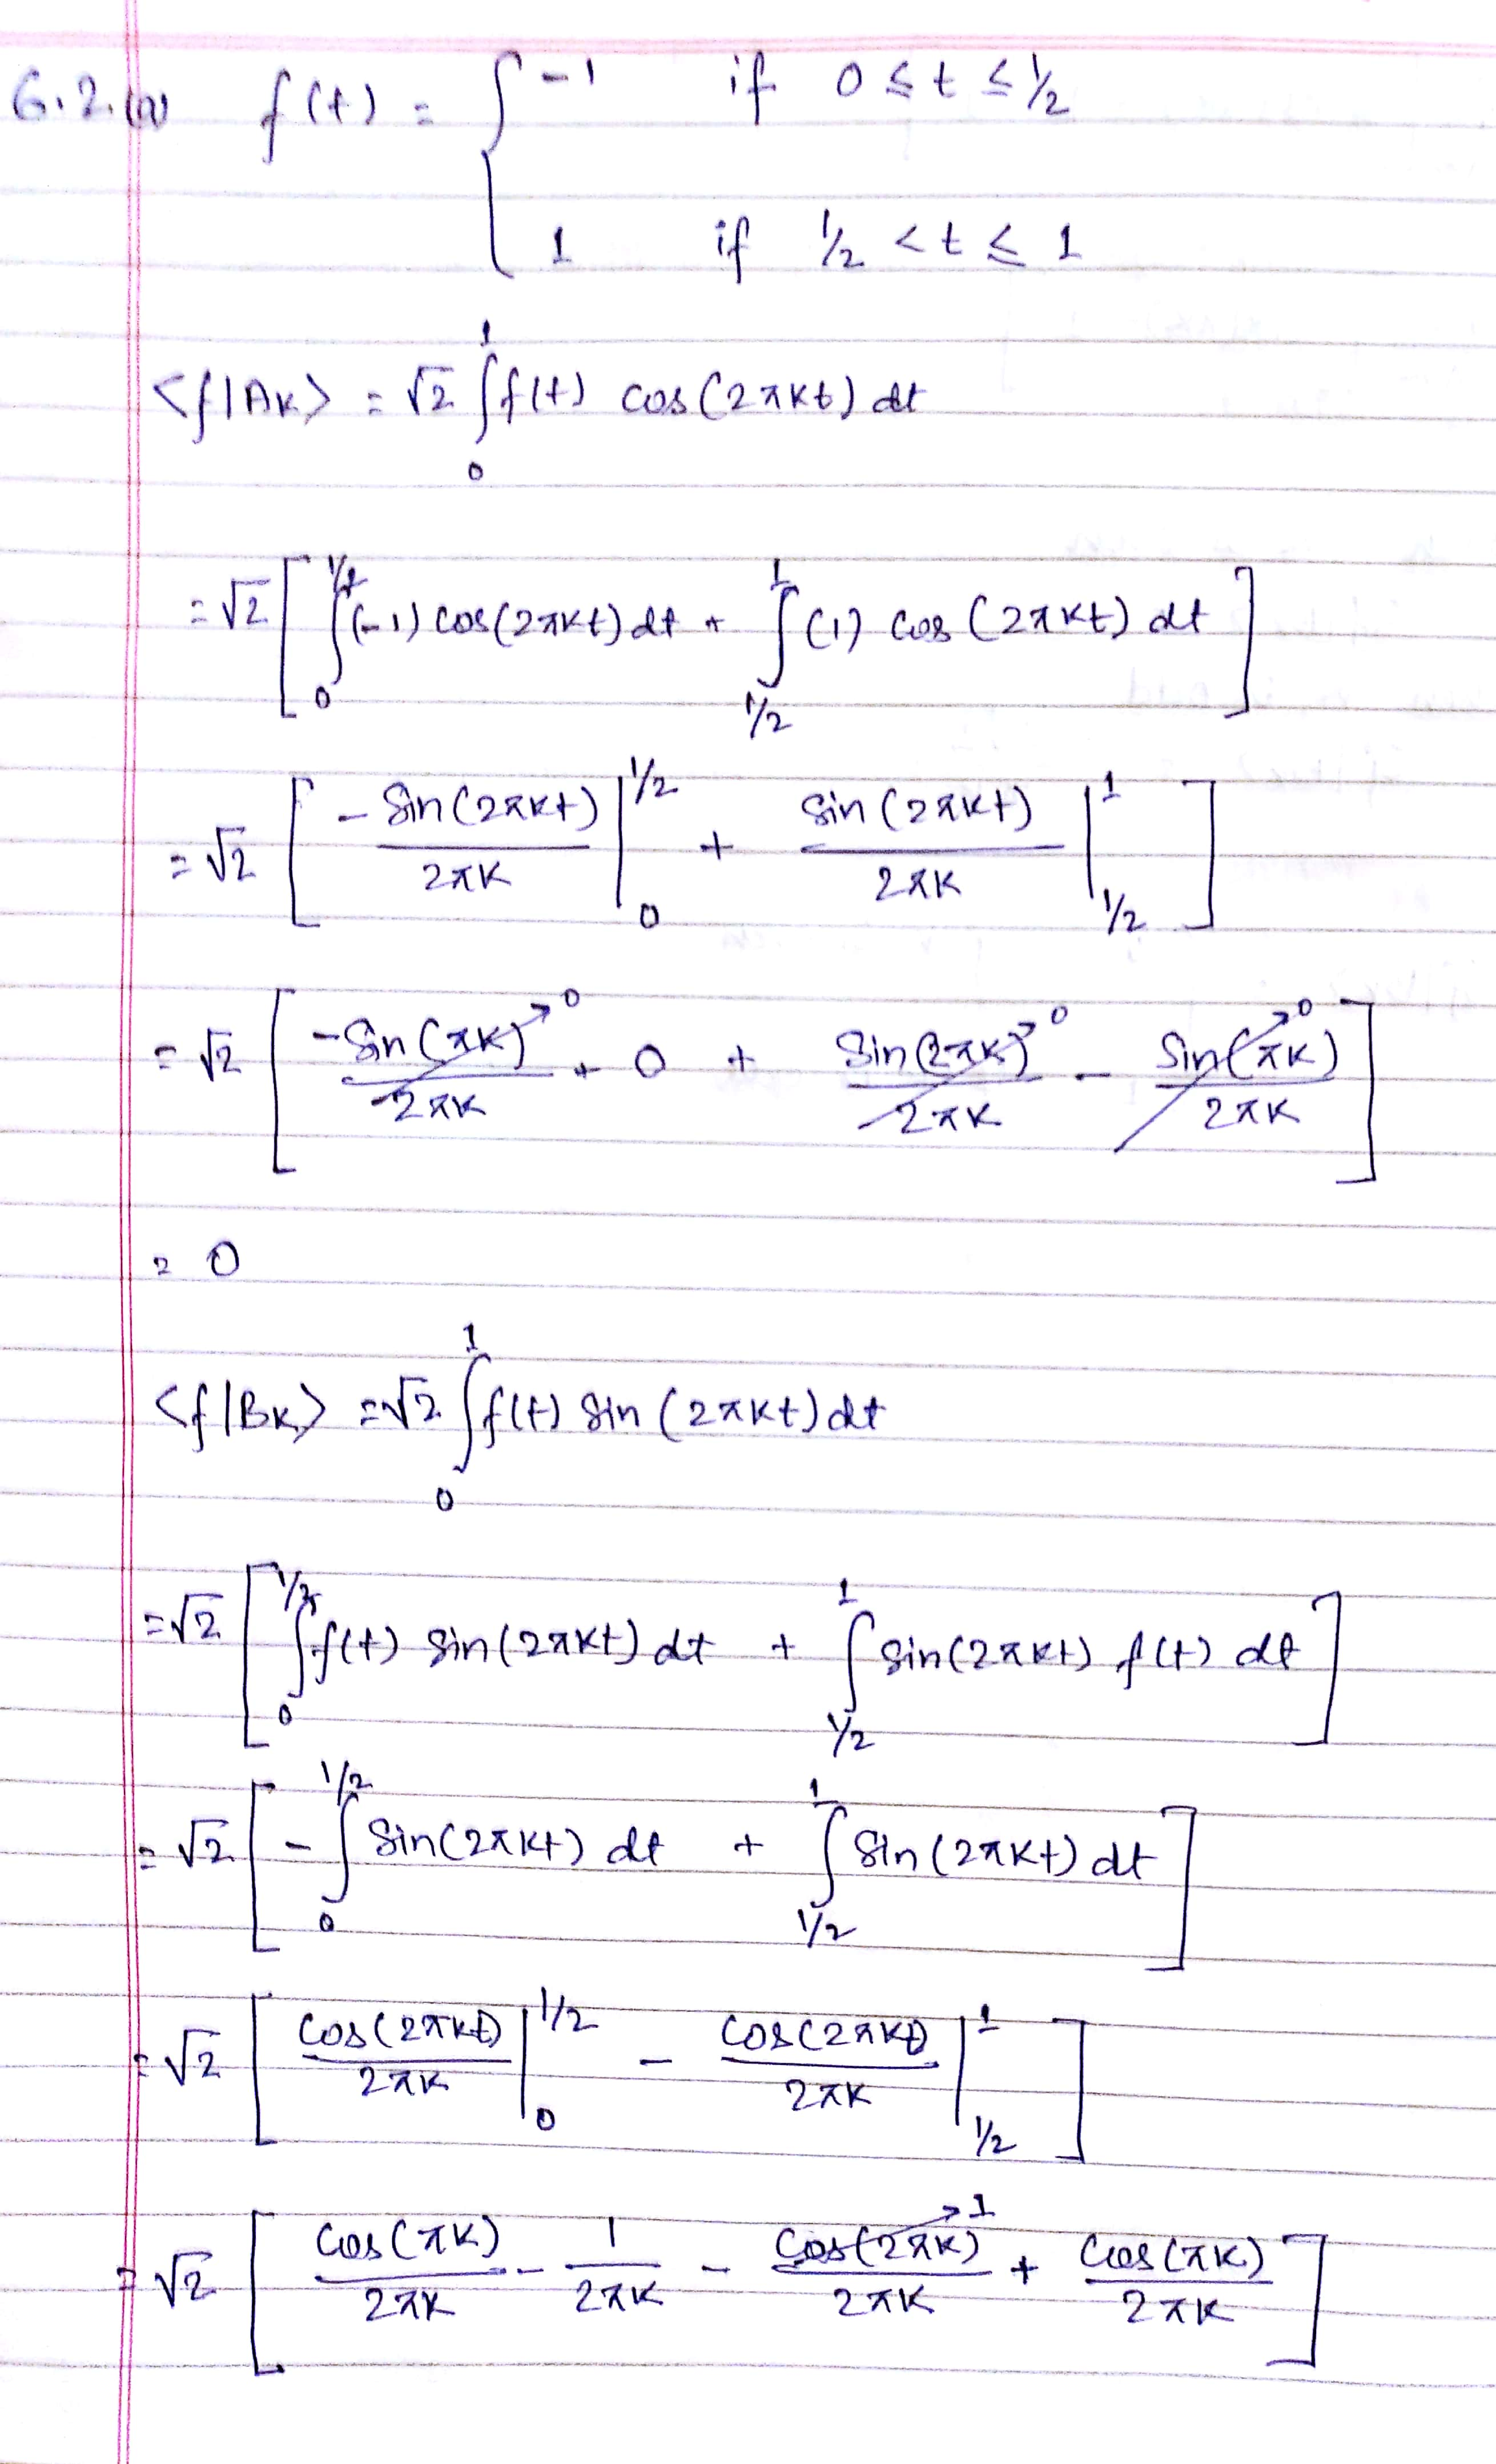 6.2.(a) f(t) = { -1 if 0 ≤ t ≤ 1/2
1 if 1/2 < t ≤ 1
<f|Ak> = √2 ∫₀¹ f(t) cos(2πkt) dt
= √2 [ ∫₀^{1/2} (-1) cos(2πkt) dt + ∫_{1/2}^{1} (1) cos(2πkt) dt ]
= √2 [ - sin(2πkt)/2πk |₀^{1/2} + sin(2πkt)/2πk |_{1/2}^{1} ]
= √2 [ -sin(πk)/2πk →0 + 0 + sin(2πk)/2πk →0 - sin(πk)/2πk →0 ]
= 0
<f|Bk> = √2 ∫₀¹ f(t) sin(2πkt) dt
= √2 [ ∫₀^{1/2} f(t) sin(2πkt) dt + ∫_{1/2}^{1} sin(2πkt) f(t) dt ]
= √2 [ - ∫₀^{1/2} sin(2πkt) dt + ∫_{1/2}^{1} sin(2πkt) dt ]
= √2 [ cos(2πkt)/2πk |₀^{1/2} - cos(2πkt)/2πk |_{1/2}^{1} ]
= √2 [ cos(πk)/2πk - 1/2πk - cos(2πk)→1/2πk + cos(πk)/2πk ]